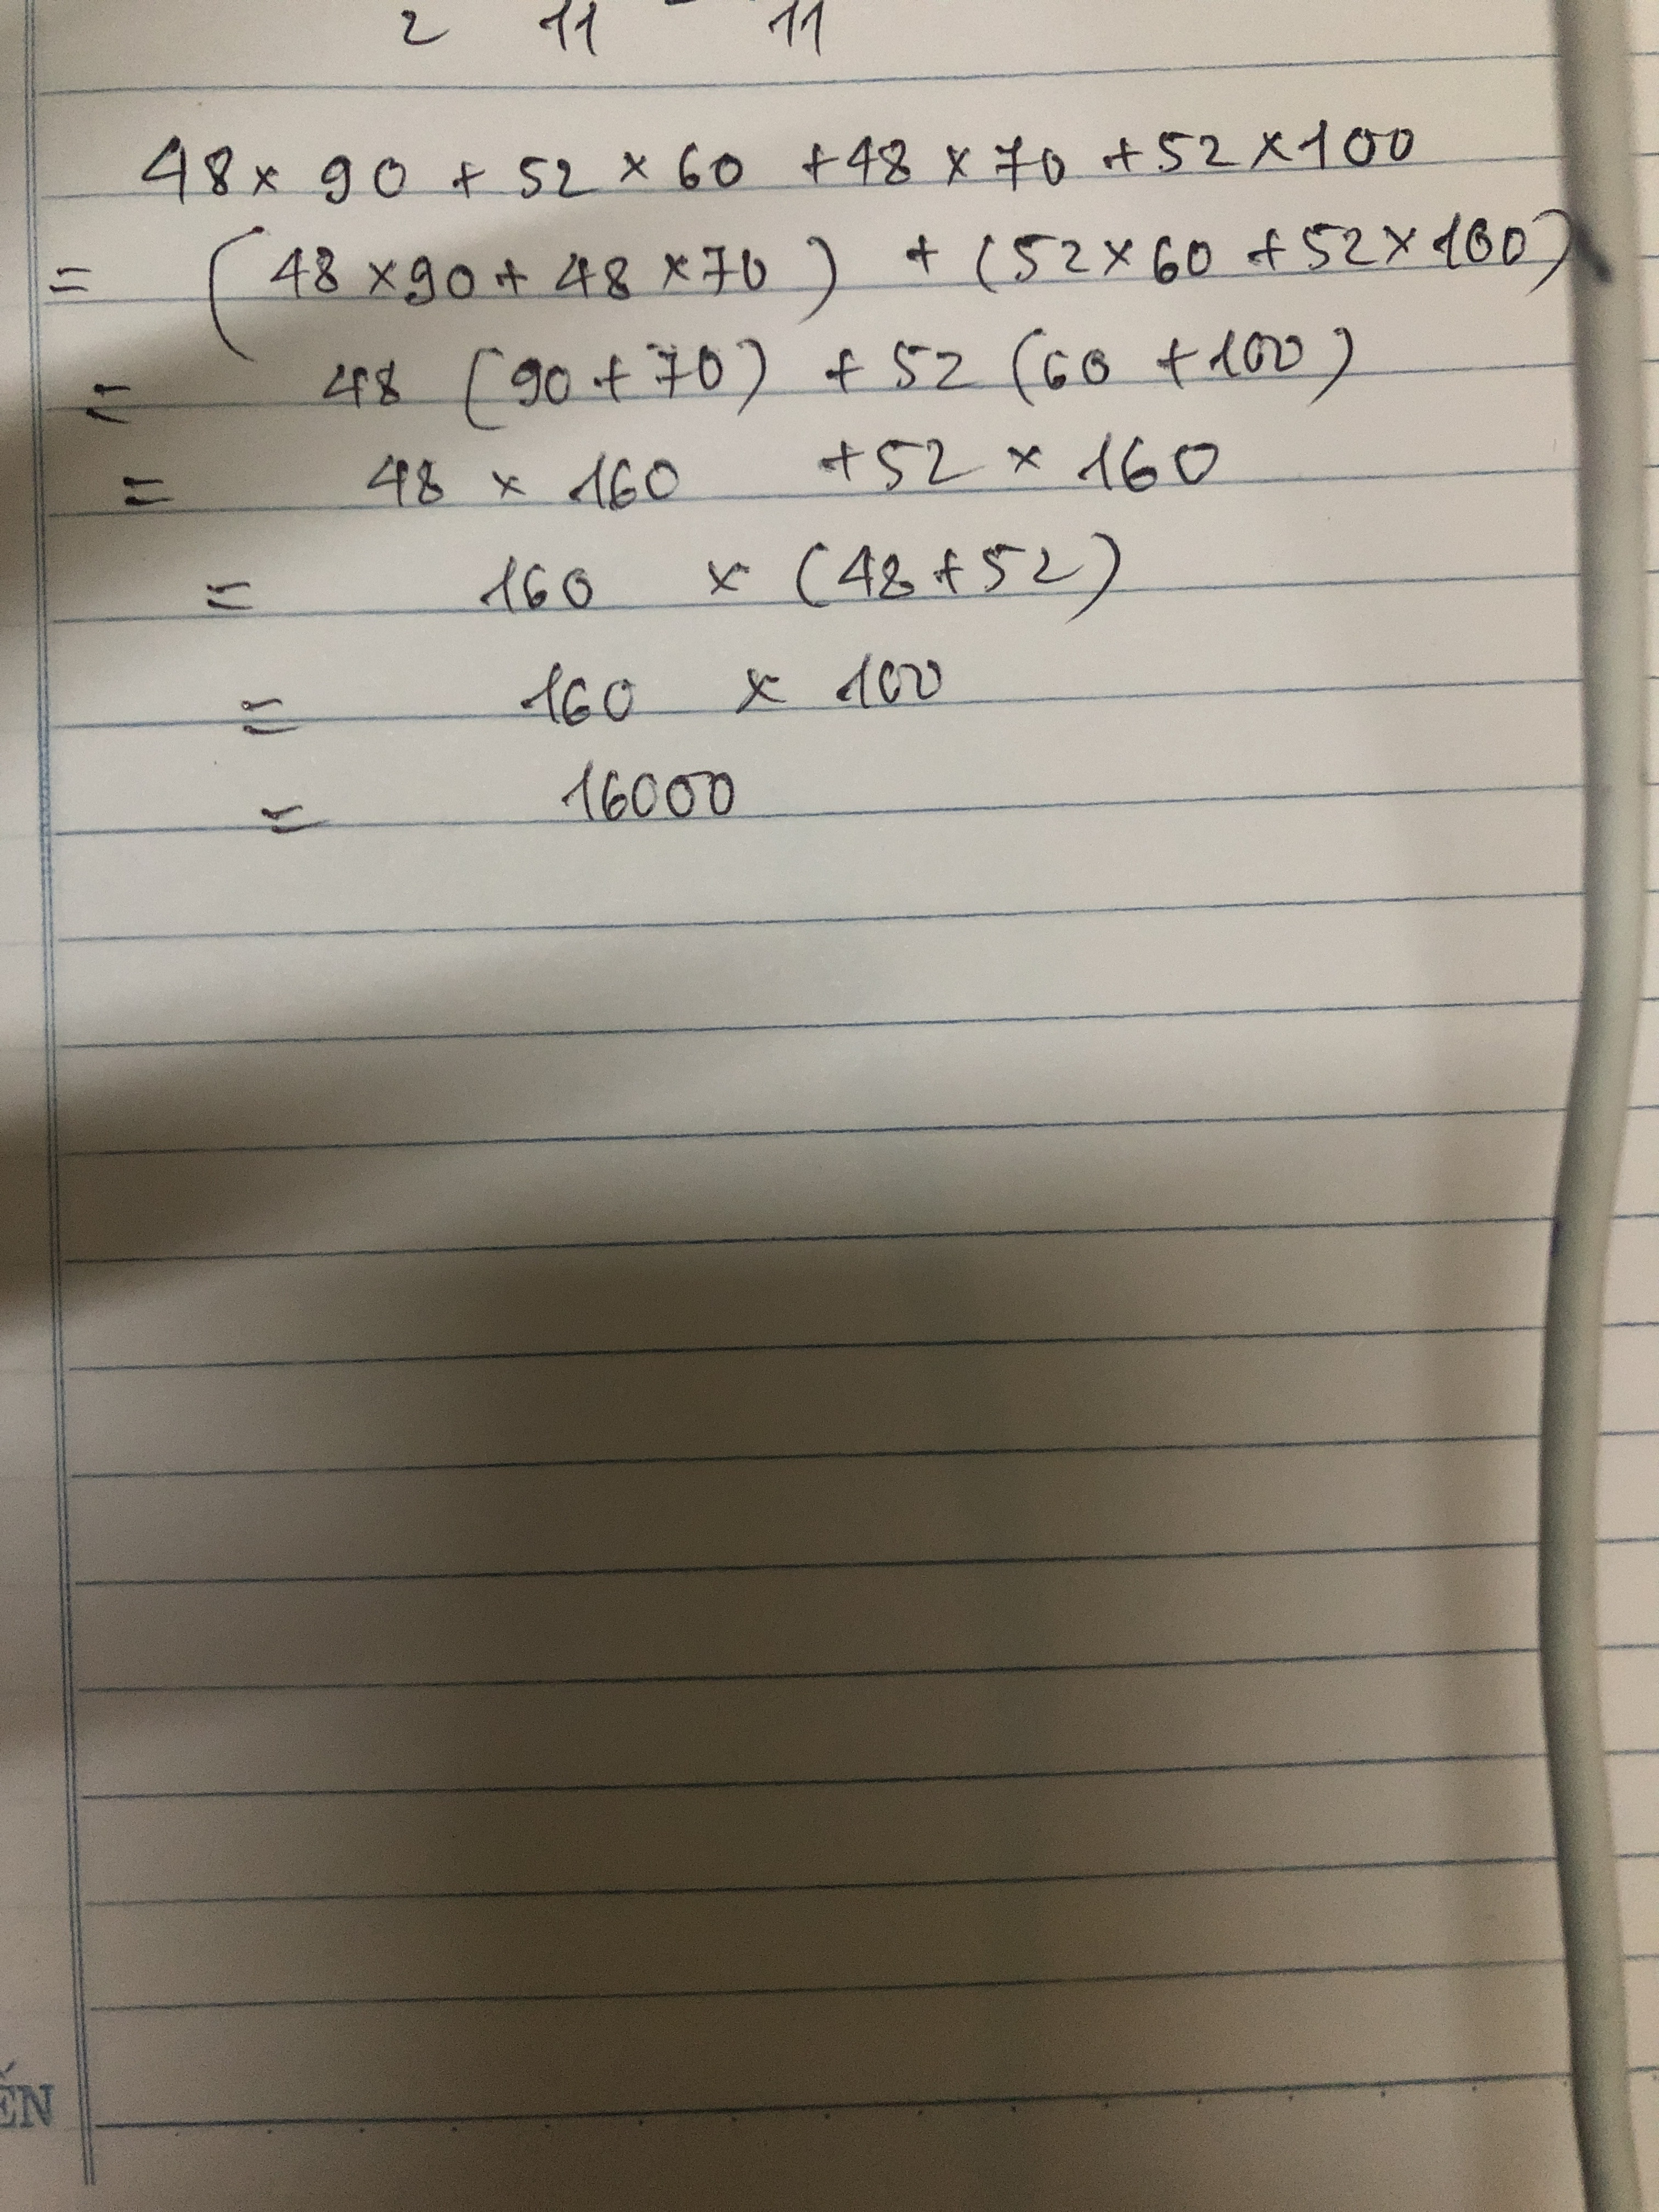 2 11 11
48 × 90 + 52 × 60 + 48 × 70 + 52 × 100
= (48 × 90 + 48 × 70) + (52 × 60 + 52 × 100)
= 48 (90 + 70) + 52 (60 + 100)
= 48 × 160 + 52 × 160
= 160 × (48 + 52)
= 160 × 100
= 16000
ẾN